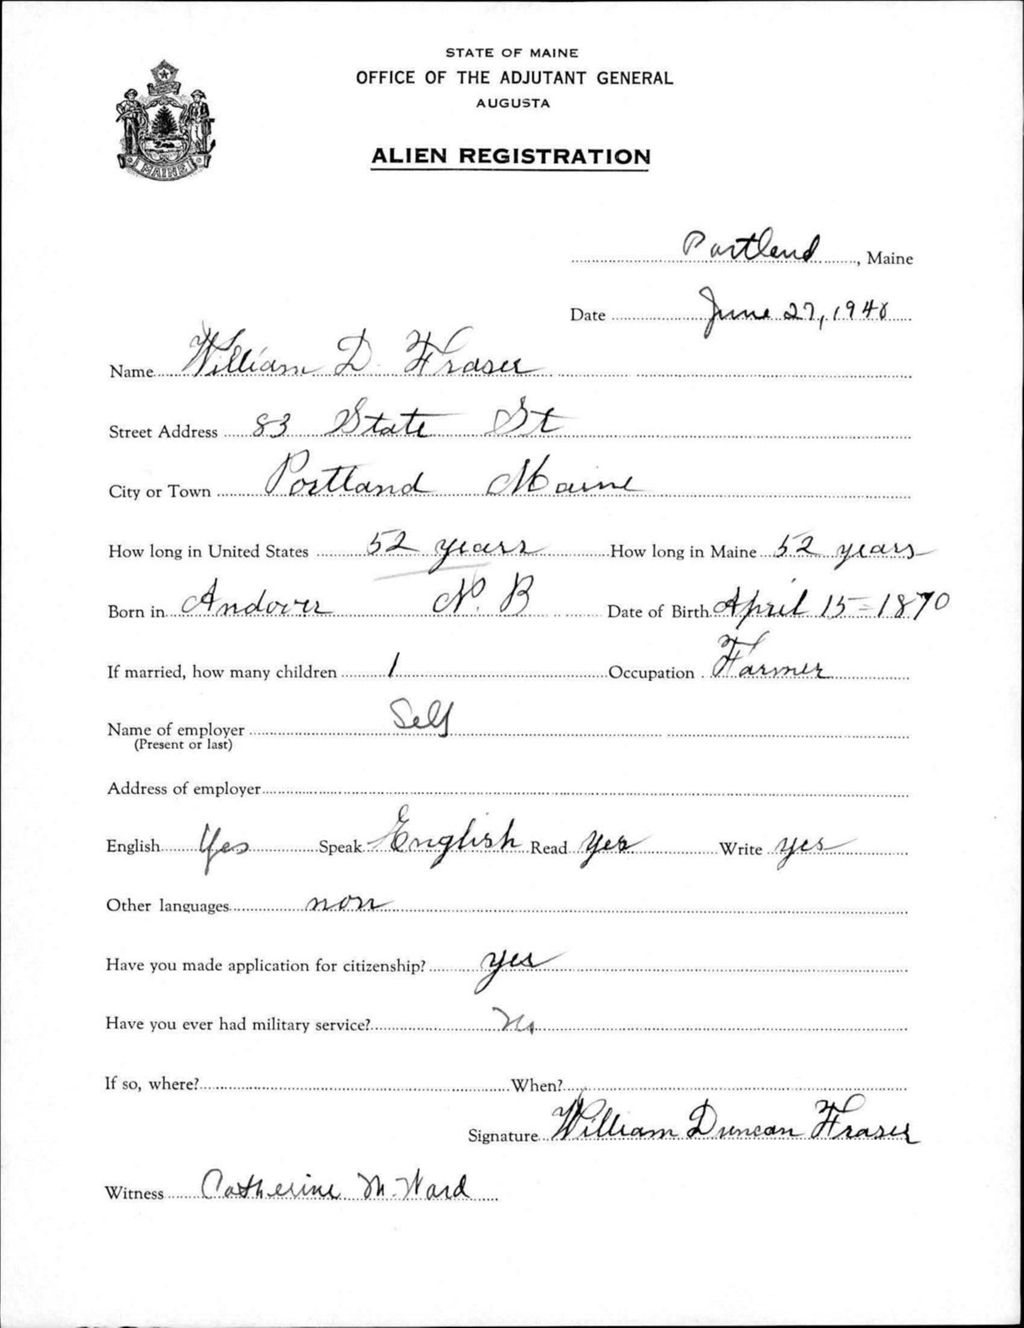 STATE OF MAINE
OFFICE OF THE ADJUTANT GENERAL
AUGUSTA
ALIEN REGISTRATION
MAINE
Portland, Maine
Date June 27, 1940
Name William D. Fraser
Street Address 83 State St
City or Town Portland Maine
How long in United States 52 years How long in Maine 52 years
Born in Andover N. B Date of Birth April 15-1870
If married, how many children 1 Occupation Farmer
Name of employer Self
(Present or last)
Address of employer
English Yes Speak English Read yes Write yes
Other languages non
Have you made application for citizenship? yes
Have you ever had military service? No
If so, where? When?
Signature William Duncan Fraser
Witness Catherine M. Ward